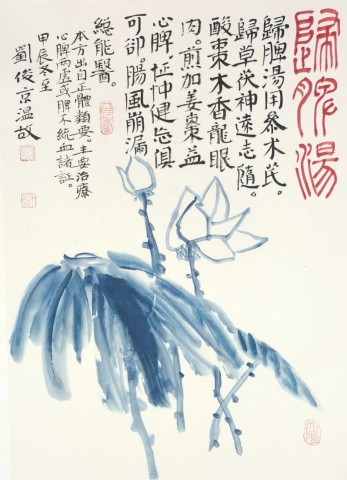 歸脾湯
歸脾湯用參朮芪。
歸草茯神遠志隨。
酸棗木香龍眼
肉。煎加姜棗益
心脾。怔忡健忘俱
可卻。腸風崩漏
總能醫。
本方出自正體類要。主要治療
心脾兩虛或脾不統血諸証。
甲辰冬至
劉俊京温故